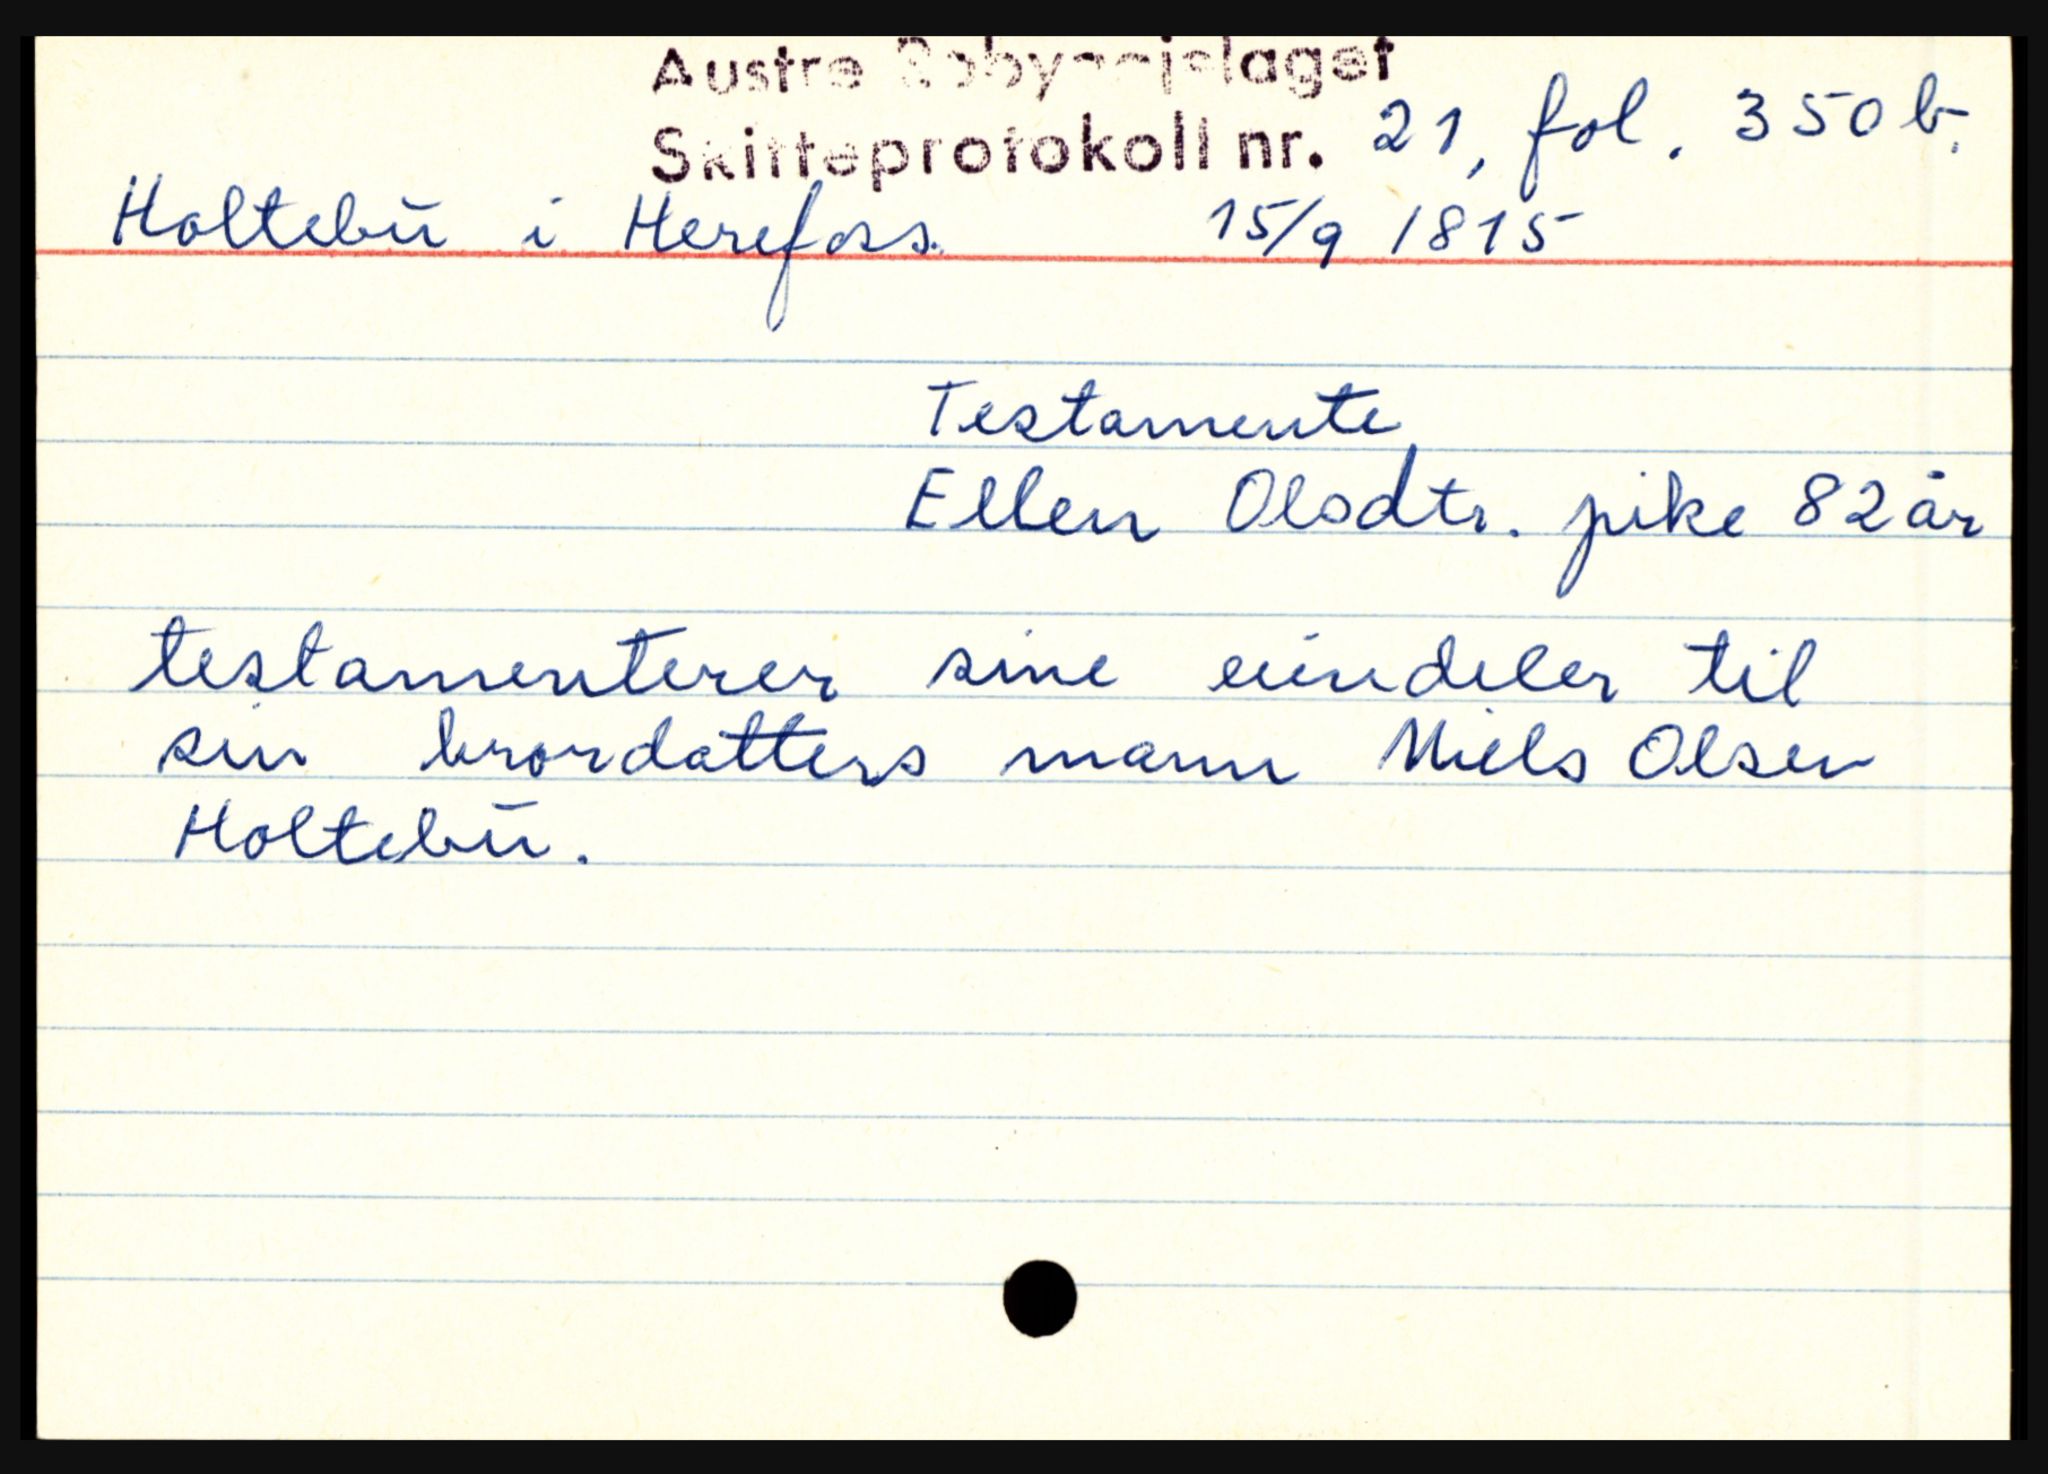 Austre Robyggjelaget
Skifteprotokoll nr. 21, fol. 350b.
Holtebū i Herefoss. 15/9 1815
Testamente
Ellen Olsdtr. pike 82 år
testamenterer sine eiendeler til
sin brordatters mann Niels Olsen
Holtebū.